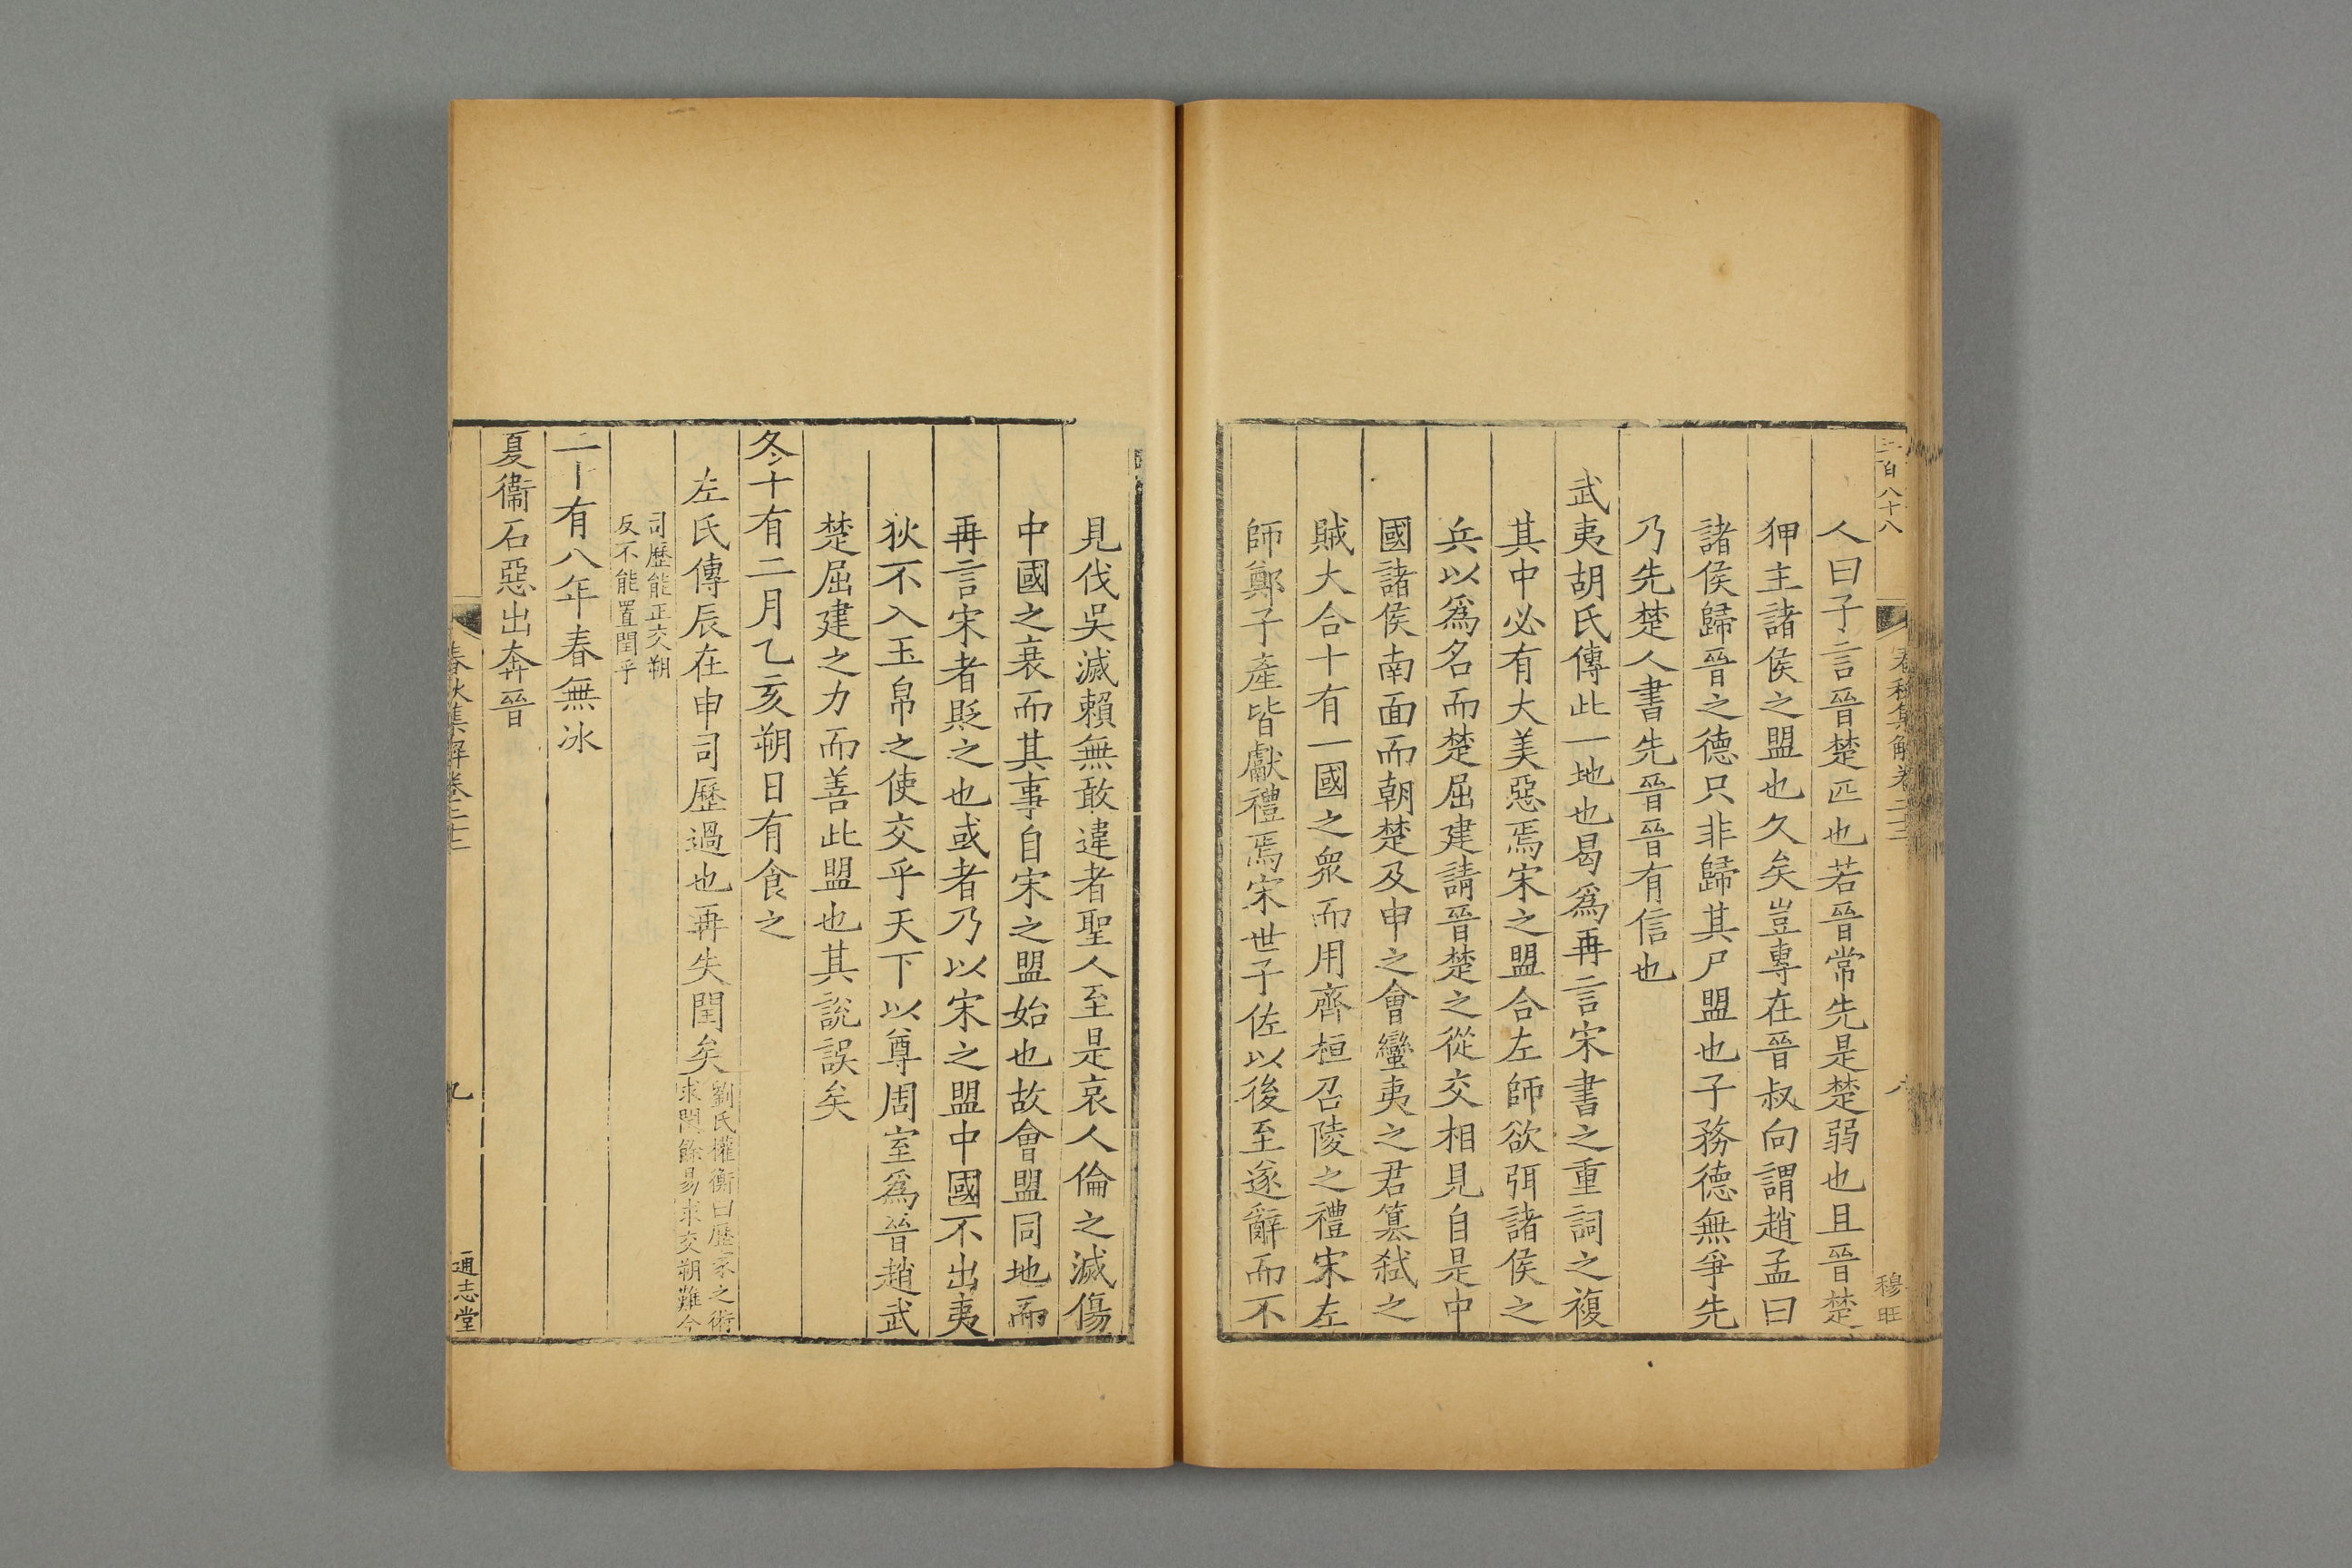 三百八十八
春秋集解卷二十三
八
穆旺
人曰子言晉楚匹也若晉常先是楚弱也且晉楚
狎主諸侯之盟也久矣豈專在晉叔向謂趙孟曰
諸侯歸晉之德只非歸其尸盟也子務德無爭先
乃先楚人書先晉晉有信也
武夷胡氏傳此一地也曷爲再言宋書之重詞之複
其中必有大美惡焉宋之盟合左師欲弭諸侯之
兵以爲名而楚屈建請晉楚之從交相見自是中
國諸侯南面而朝楚及申之會蠻夷之君簒弑之
賊大合十有一國之衆而用齊桓召陵之禮宋左
師鄭子產皆獻禮焉宋世子佐以後至遂辭而不
見伐吳滅賴無敢違者聖人至是哀人倫之滅傷
中國之衰而其事自宋之盟始也故會盟同地而
再言宋者貶之也或者乃以宋之盟中國不出夷
狄不入玉帛之使交乎天下以尊周室爲晉趙武
楚屈建之力而善此盟也其說誤矣
冬十有二月乙亥朔日有食之
左氏傳辰在申司歷過也再失閏矣
劉氏權衡曰歷家之術
求閏餘易求交朔難今
司歷能正交朔
反不能置閏乎
二十有八年春無冰
夏衞石惡出奔晉
春秋集解卷二十三
九
通志堂